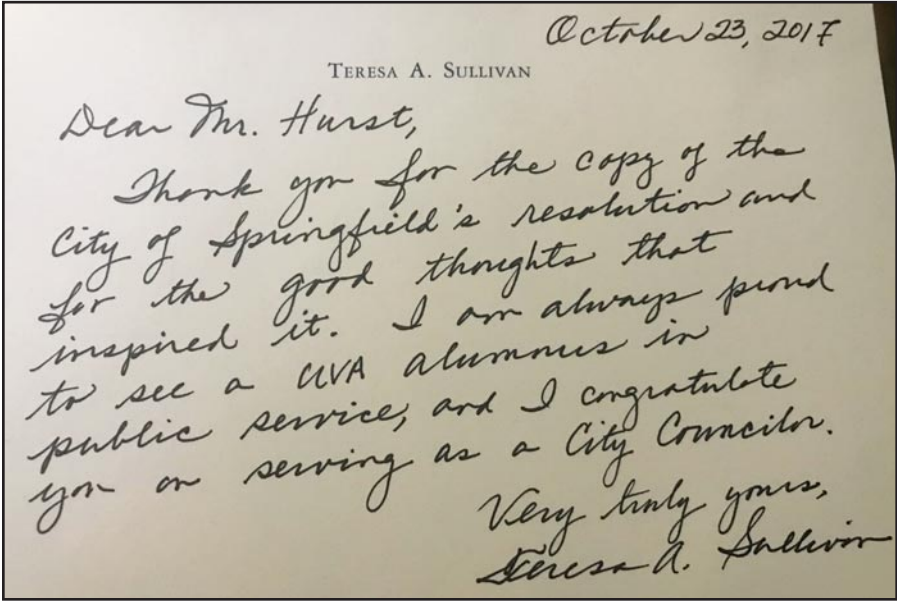 October 23, 2017
TERESA A. SULLIVAN
Dear Mr. Hurst,
Thank you for the copy of the
City of Springfield's resolution and
for the good thoughts that
inspired it. I am always proud
to see a UVA alumnus in
public service, and I congratulate
you on serving as a City Councilor.
Very truly yours,
Teresa A. Sullivan